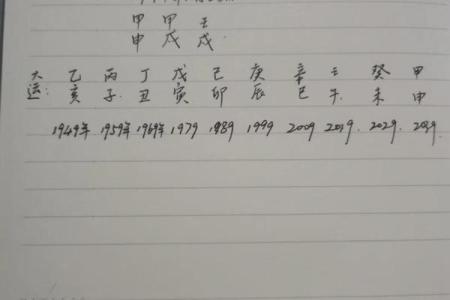 甲 甲 壬
申 戌 戌
大 乙 丙 丁 戊 己 庚 辛 壬 癸 甲
运: 亥 子 丑 寅 卯 辰 巳 午 未 申
1949年 1959年 1969年 1979 1989 1999 2009 2019. 2029. 2039